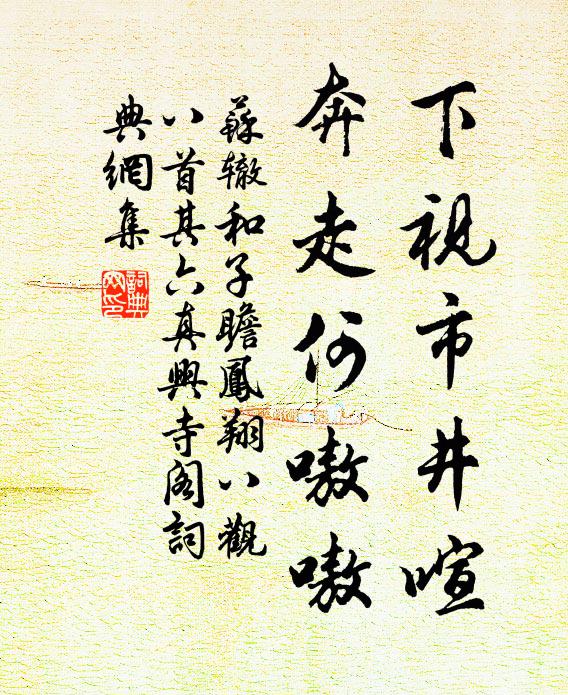 下視市井喧
奔走何嗷嗷
蘇轍和子瞻鳳翔八觀
八首其六真興寺閣詞
典網集